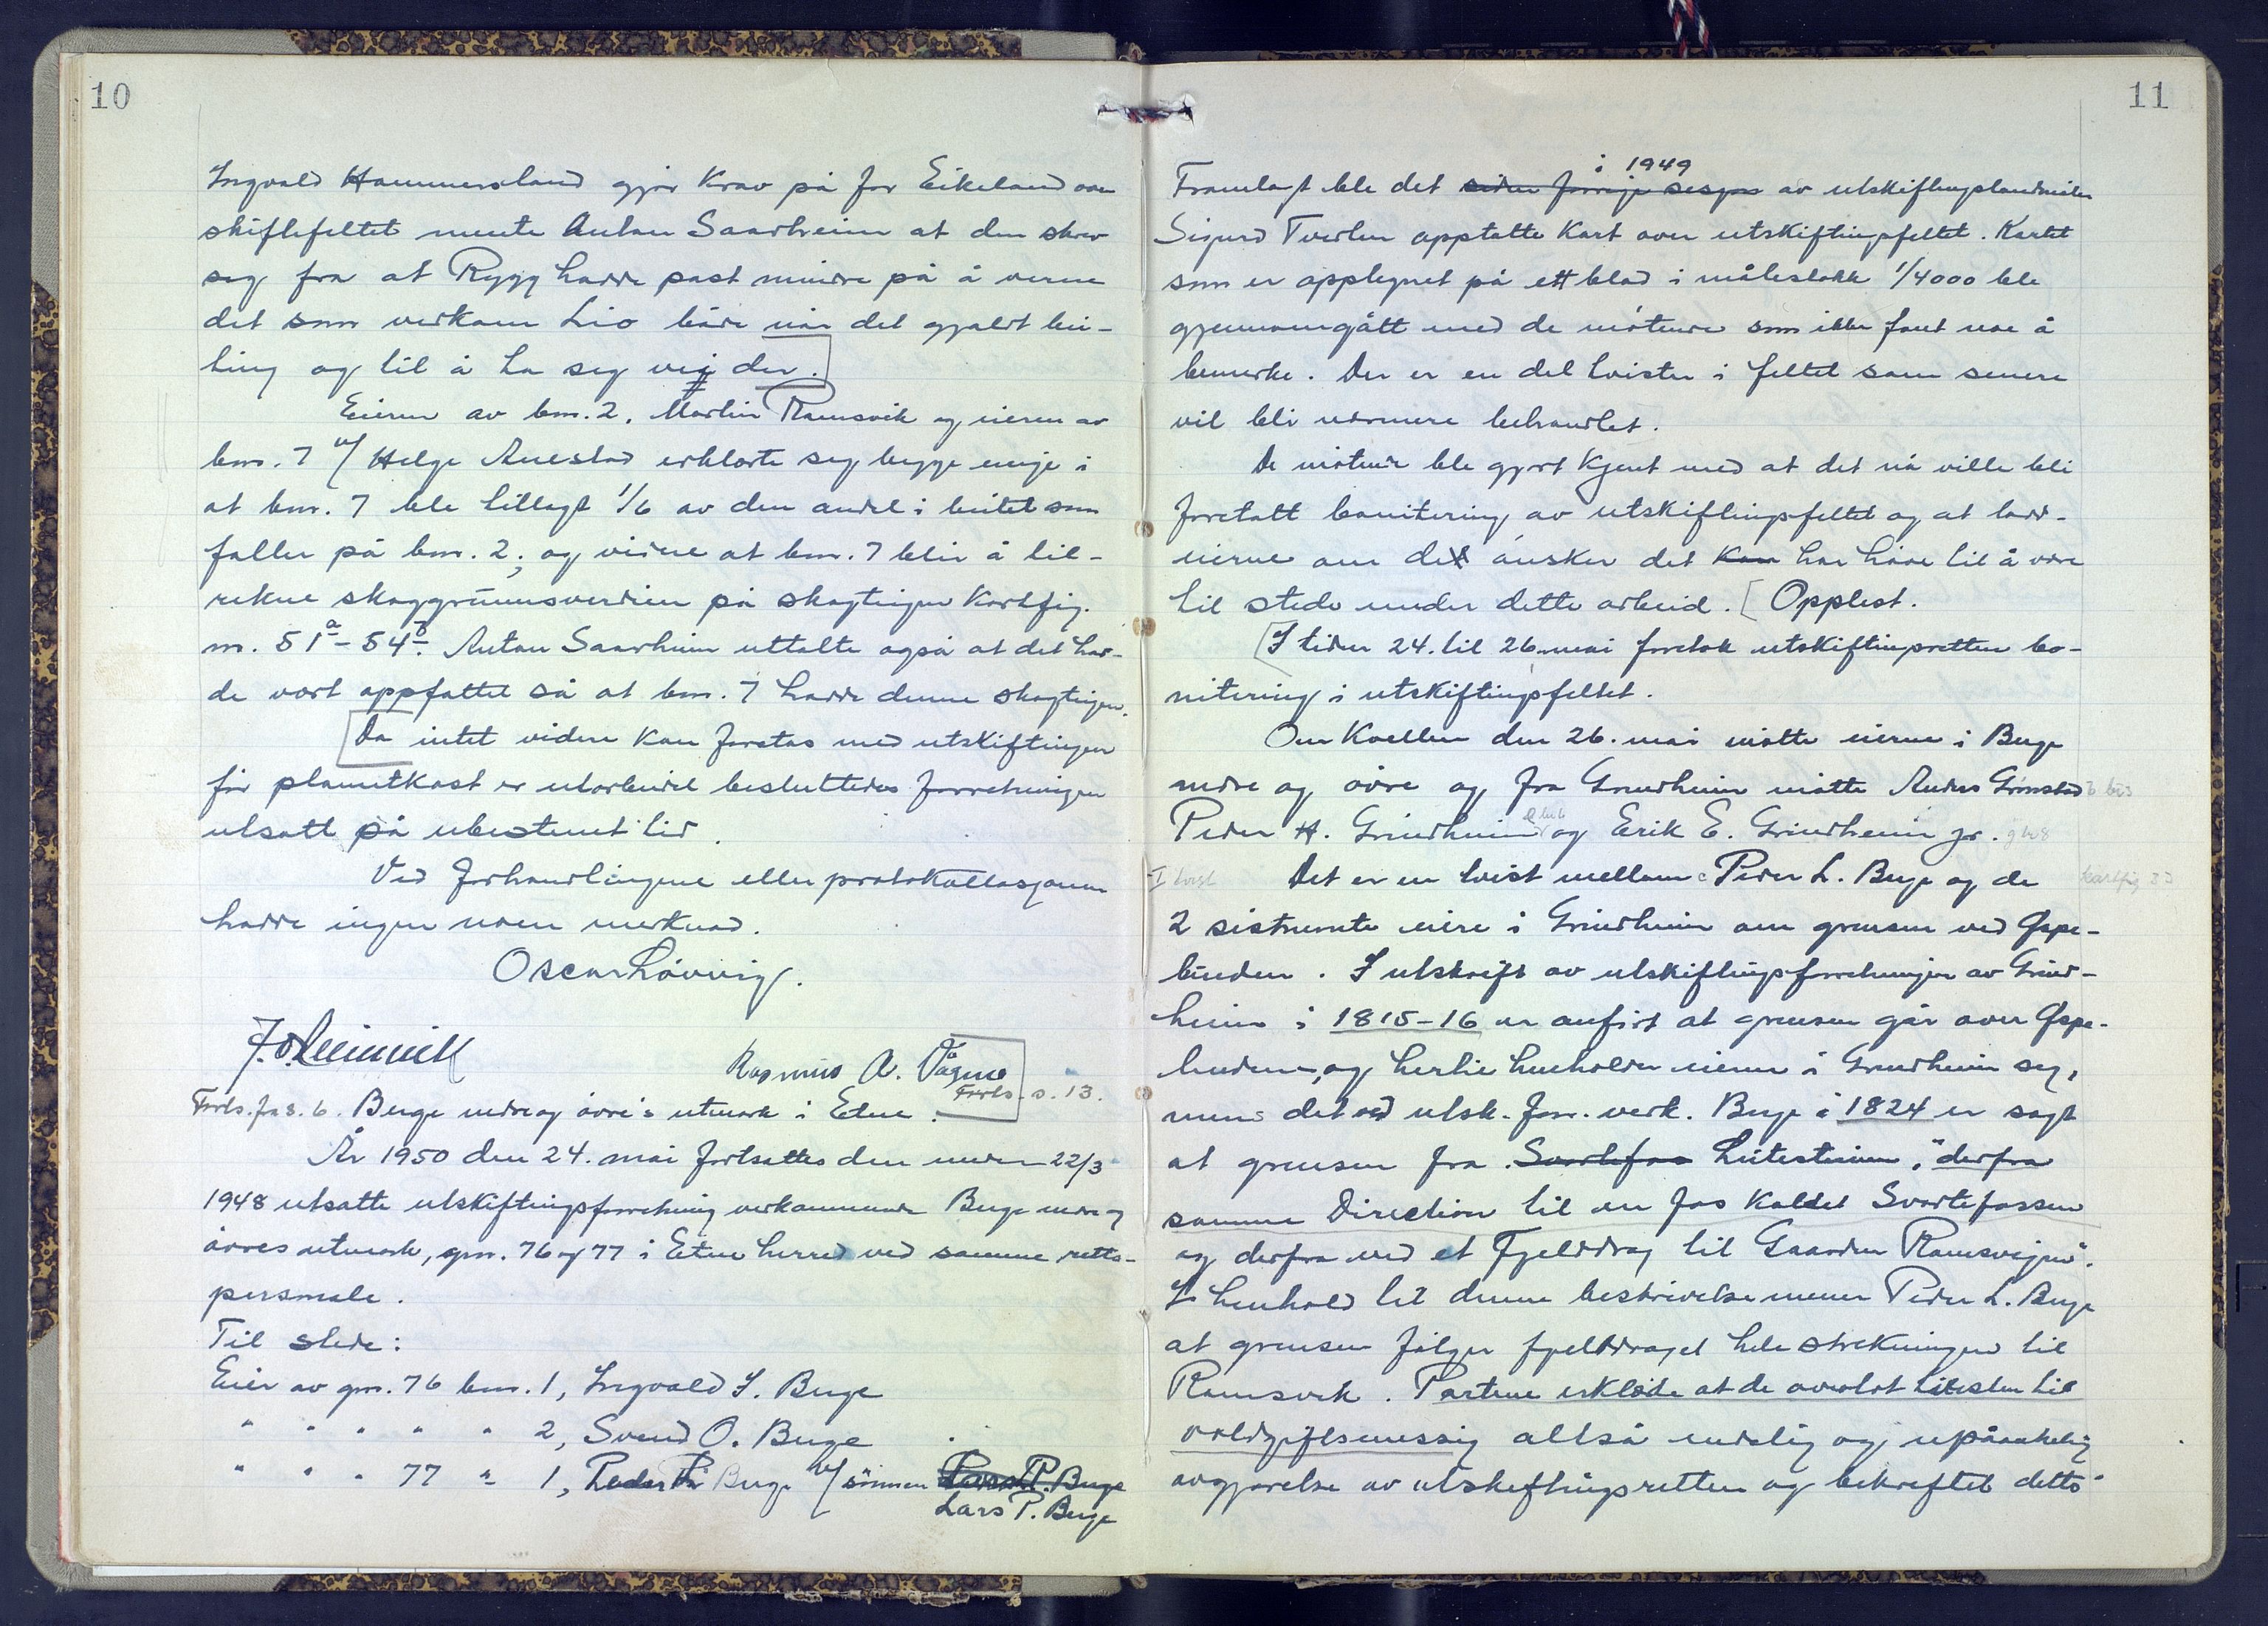 10
Ingvald Hammersland gjör krav på for Eikeland om
skiftefeltet mente Anton Saarheim at den skrev
seg fra at Rygg hadde past mindre på å verne
det som vedkom Lio både når det gjaldt bei-
ting og til å ta seg vei der.
Eieren av bnr. 2, Martin Ramsvik og eieren av
bnr. 7 v/ Helge Anestad erklærte seg begge enige i
at bnr. 7 ble tillagt 1/6 av den andel i beitet som
faller på bnr. 2, og videre at bnr. 7 blir å til-
rekne skoggrunnsverdien på skogteigen kartfig.
nr. 51a - 54b. Anton Saarheim uttalte også at det had-
de vært oppfattet så at bnr. 7 hadde denne skogteigen.
Da intet videre kan foretas med utskiftingen
før planutkast er utarbeidet besluttedes forretningen
utsatt på ubestemt tid.
Ved forhandlingene eller protokollasjonen
hadde ingen noen merknad.
Oscar Løvvig.
Rasmus A. Vågene
Forts. s. 13.
Forts. fra s. 6. Berge nedre og övre's utmark i Etne.
År 1950 den 24. mai fortsattes den under 22/3
1948 utsatte utskiftingsforretning vedkommende Berge nedre og
övres utmark, gnr. 76 og 77 i Etne herred ved samme retts-
personale.
Til stede:
Eier av gnr. 76 bnr. 1, Ingvald I. Berge
" " " " " 2, Svend O. Berge
" " " 77 " 1, Peder L. Berge v/ sönnen Lars P. Berge
Lars P. Berge
11
i 1949
Framlagt ble det siden forrige sesjon av utskiftingslandmåler
Sigurd Tveiten opptatte kart over utskiftingsfeltet. Kartet
som er opptegnet på ett blad i målestokk 1/4000 ble
gjennomgått med de möttende som ikke fant noe å
bemerke. Der er en del tvister i feltet som senere
vil bli nærmere behandlet.
De möttende ble gjort kjent med at det nå ville bli
foretatt bonitering av utskiftingsfeltet og at lodd-
eierne om det önsker det kan har höve til å være
til stede under dette arbeid. Opplest.
I tiden 24. til 26. mai foretok utskiftingsretten bo-
nitering i utskiftingsfeltet.
Om kvelden den 26. mai mötte eierne i Berge
nedre og övre og fra Grindheim mötte Anders Grönstad
Peder H. Grindheim og Erik E. Grindheim jr.
I tvist Det er en tvist mellom Peder L. Berge og de kartfig
2 sistnevnte eiere i Grindheim om grensen ved Gspe-
linden. I utskrift av utskiftingsforretningen av Grind-
heim i 1815-16 er anfört at grensen går over Gspe-
linden, og hertil henholder eierne i Grindheim seg,
mens det ved utsk. forr. vedk. Berge i 1824 er sagt
at grensen fra Svartefos Leitesteinen, "derfra
samme Direction til en fos kaldet Svartefossen
og derfra ved et Fjelddrag til Gaarden Ramsvigen".
I henhold til denne beskrivelse mener Peder L. Berge
at grensen fölger fjelldraget hele strekningen til
Ramsvik. Partene erklærte at de overlot tvisten til
voldgiftsmessig altså endelig og upåankelig
avgjörelse av utskiftingsretten og bekreftet dette